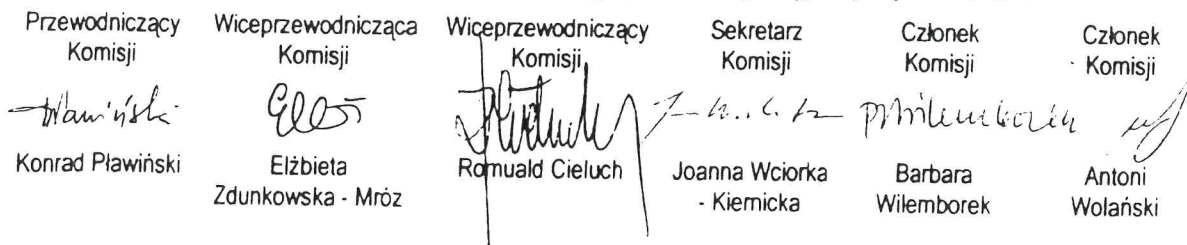 Przewodniczący Komisji
Konrad Pławiński
Wiceprzewodnicząca Komisji
Elżbieta
Zdunkowska - Mróz
Wiceprzewodniczący Komisji
Romuald Cieluch
Sekretarz Komisji
Joanna Wciorka
- Kiernicka
Członek Komisji
Barbara
Wilemborek
Członek Komisji
Antoni
Wolański